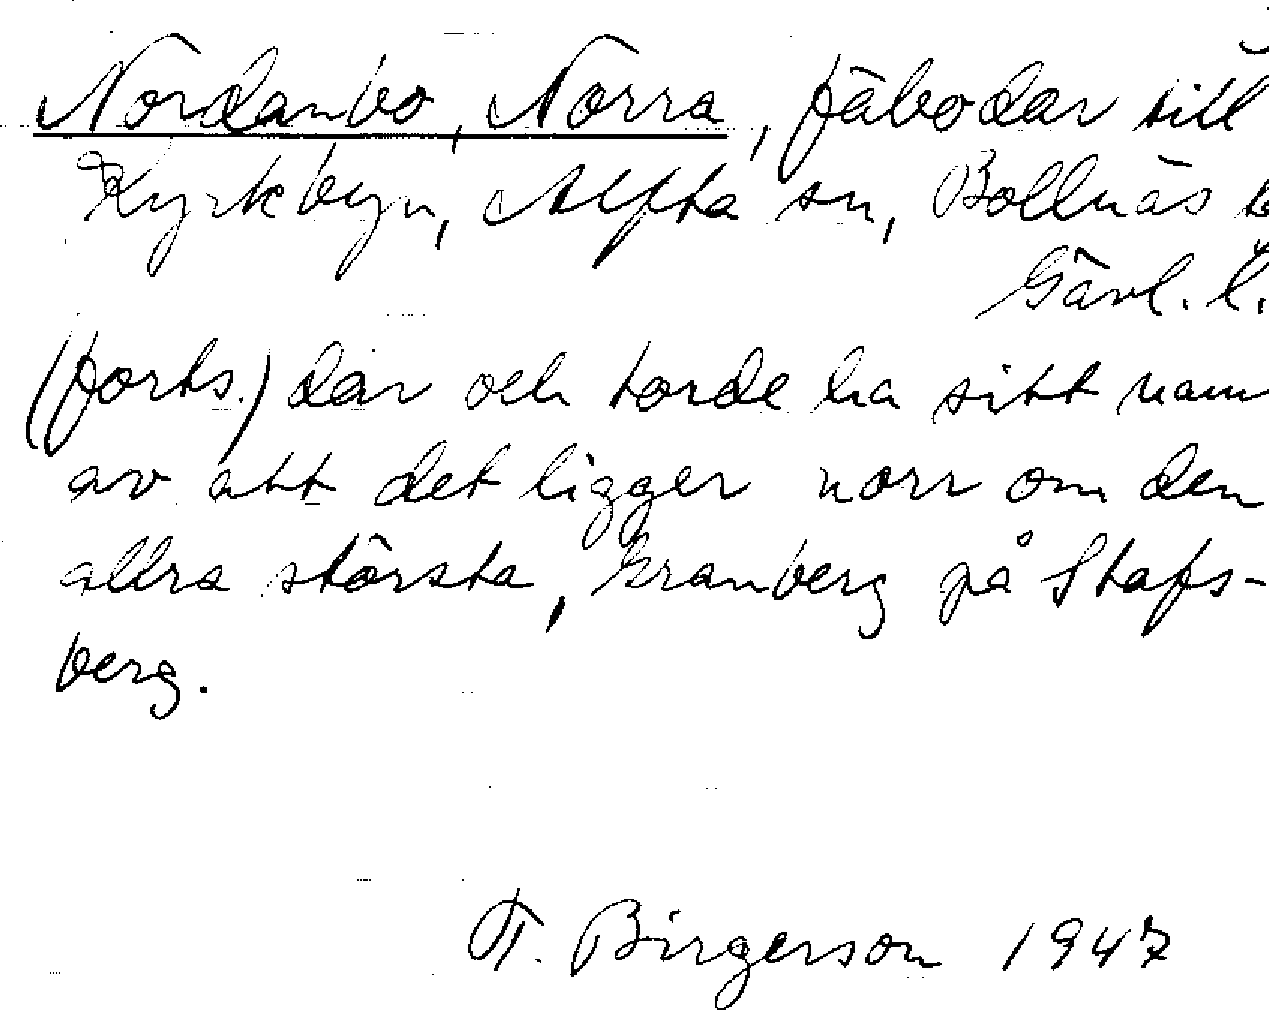 Nordanbo, Norra, fäbodar till
Kyrkbyn, Alfta sn, Bollnäs
Gävl. l.
(forts.) där och torde ha sitt namn
av att det ligger norr om den
allra största, Granberg på Stafs-
berg.
F. Birgerson 1947